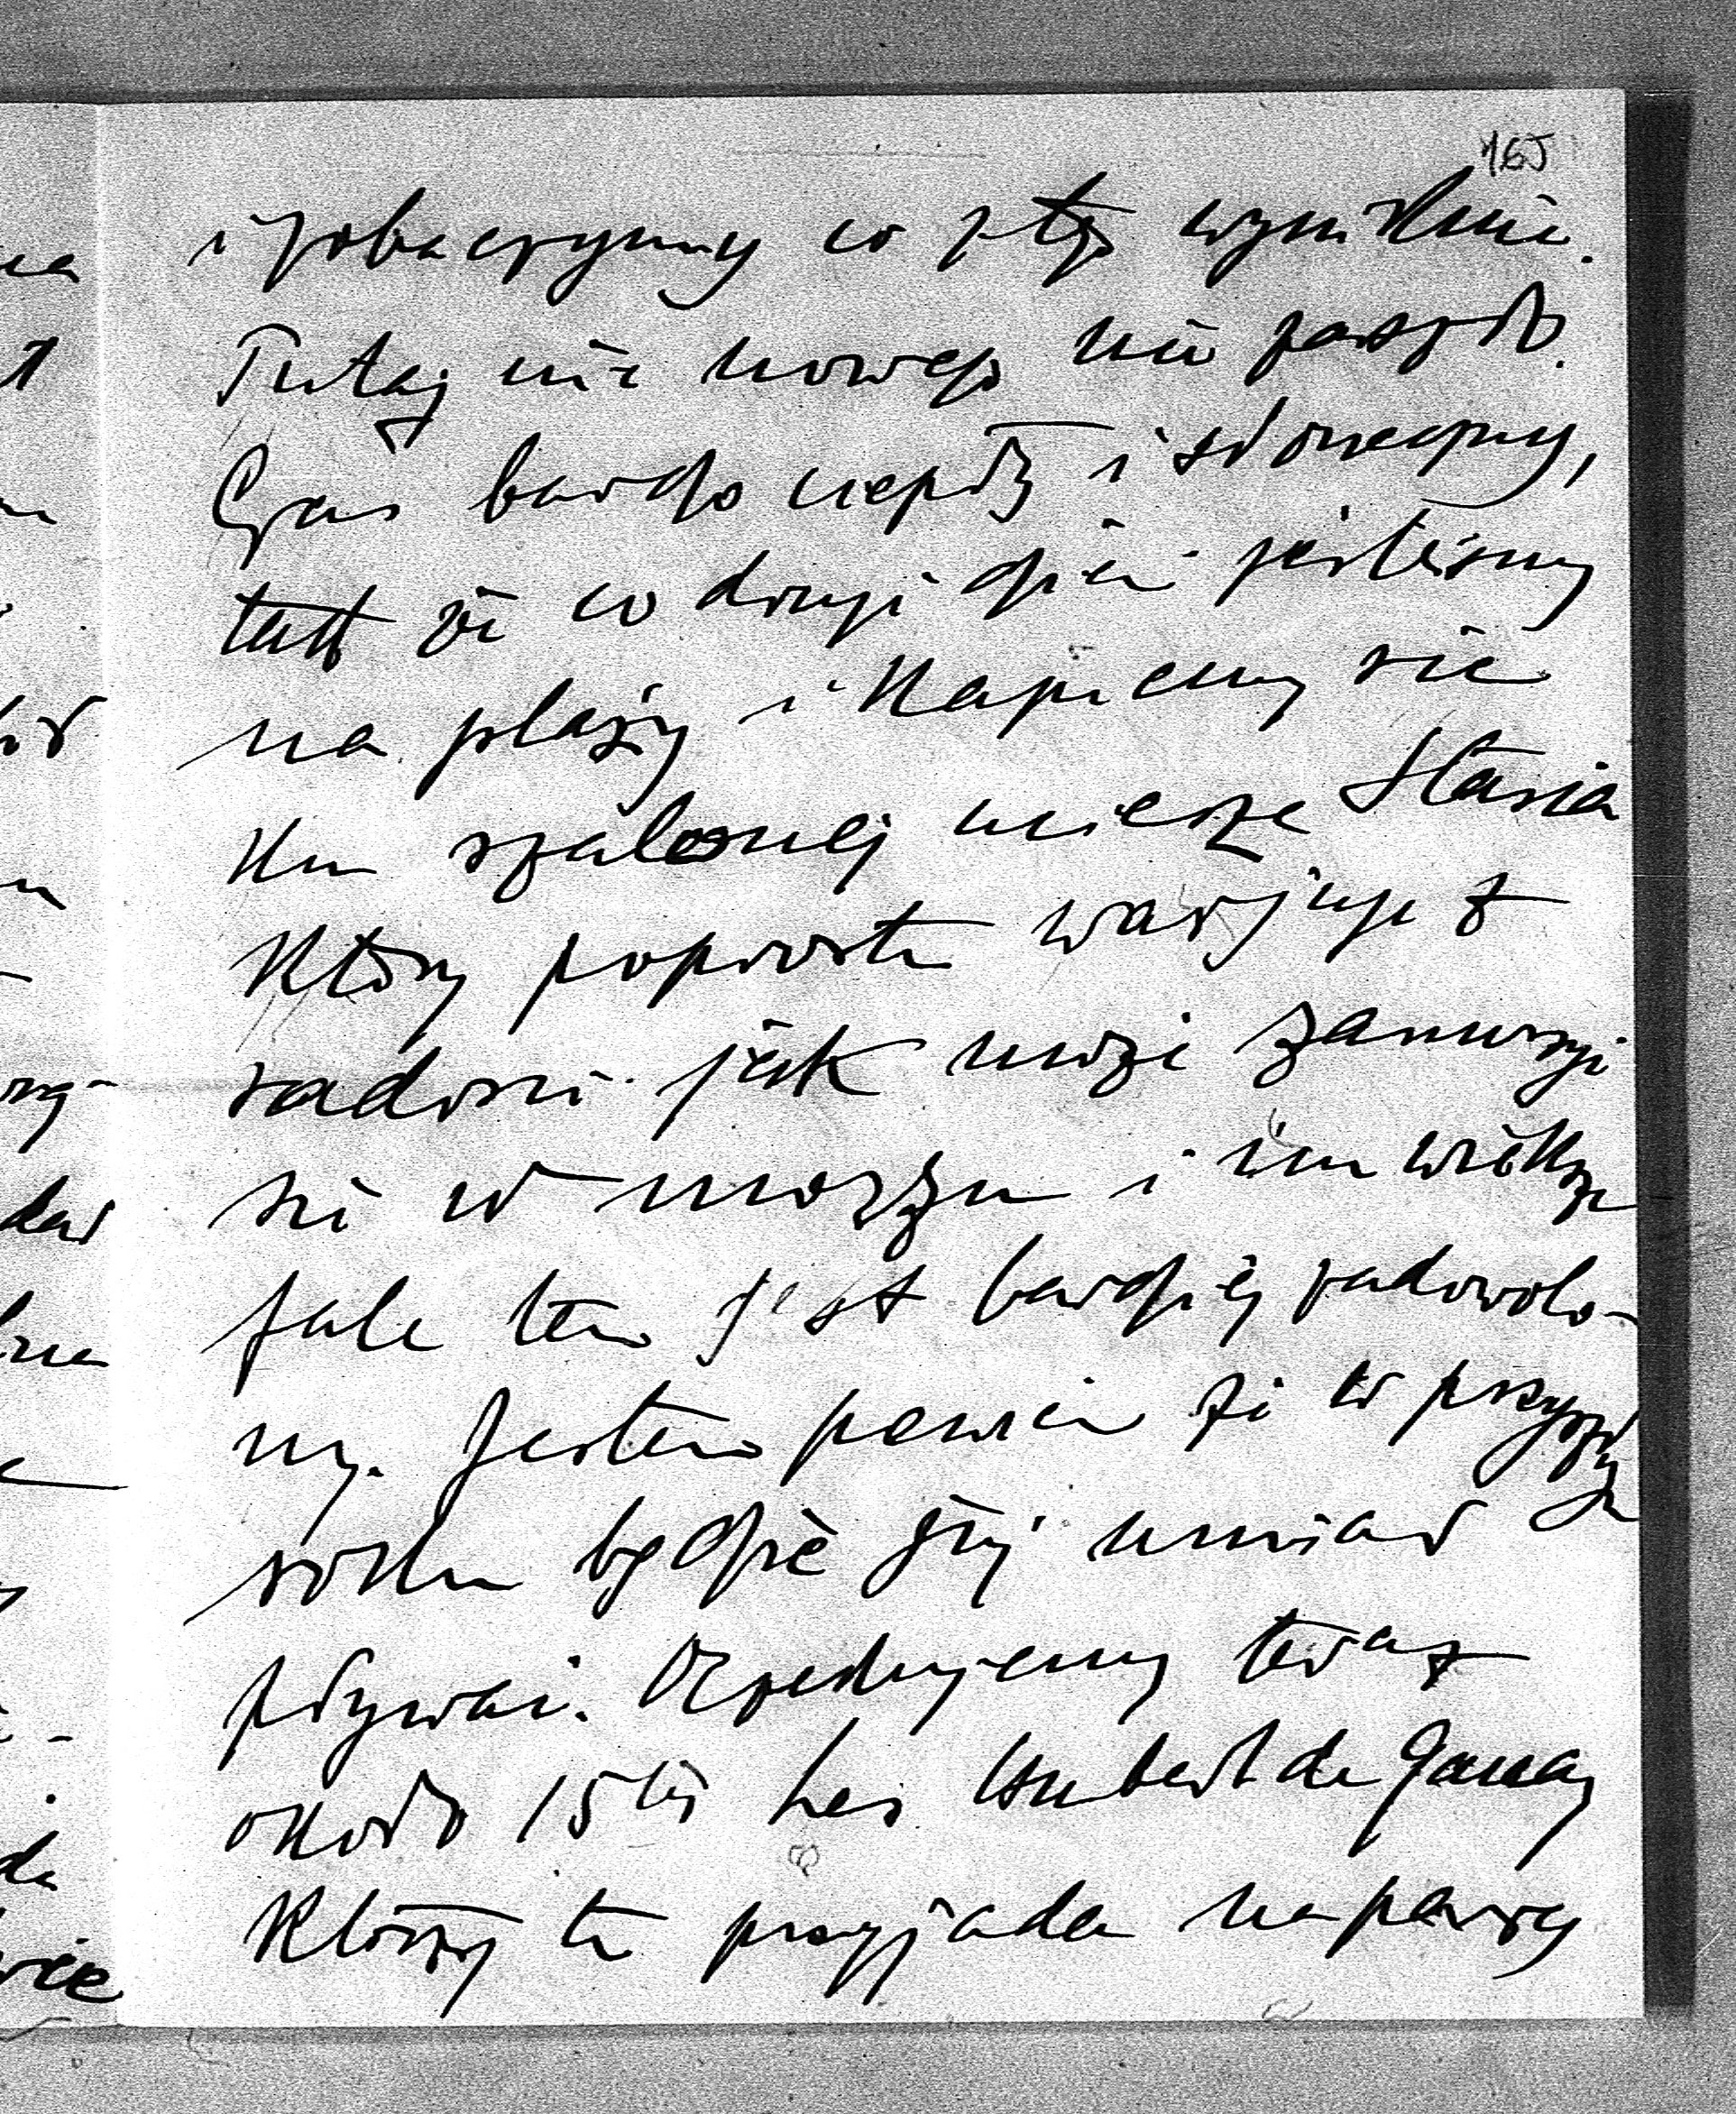 165
i zobaczymy co z tego wyniknie.
Tutaj nic nowego nie zaszło.
Czas bardzo ciepły i słoneczny,
tak że co drugi dzień jesteśmy
na plaży i kąpiemy się
ku szalonej uciesze Stasia
który poprostu warjuje z
radości jak może zanurzyć
się w morzu i im większe
fale tem jest bardziej zadowolo-
ny. Jestem pewien że w przyszłym
roku będzie już umiał
pływać. Oczekujemy teraz
około 15tej les Hubert de Ganay
którzy tu przyjadą na parę